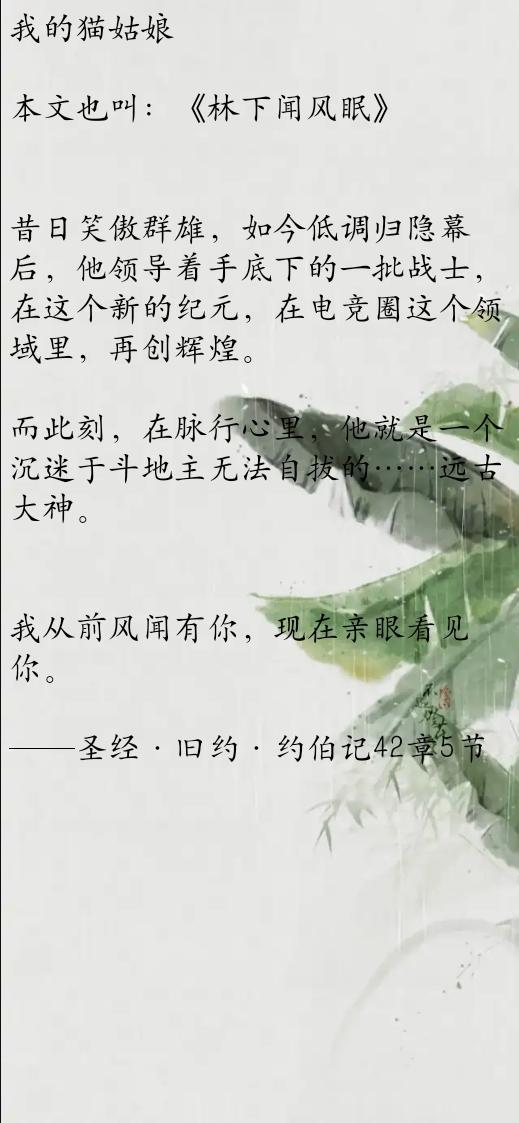 我的猫姑娘
本文也叫：《林下闻风眠》
昔日笑傲群雄，如今低调归隐幕
后，他领导着手底下的一批战士，
在这个新的纪元，在电竞圈这个领
域里，再创辉煌。
而此刻，在脉行心里，他就是一个
沉迷于斗地主无法自拔的……远古
大神。
我从前风闻有你，现在亲眼看见
你。
——圣经·旧约·约伯记42章5节